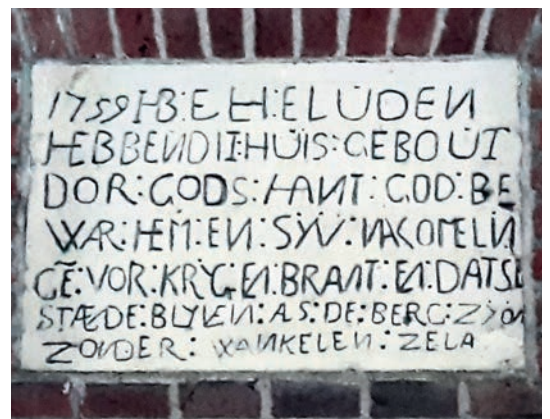 1759 HB: E H: ELUDEN
HEBBEN DIT: HUIS: GEBOUT
DOR: GODS: HANT: GOD: BE
WAR: HEM: EN: SYN: NACOMELIN
GE: VOR: KRYG: EN: BRANT: EN: DATSE
STÆDE: BLYVEN: AS: DE: BERG: ZION
ZONDER: WANKELEN: ZELA